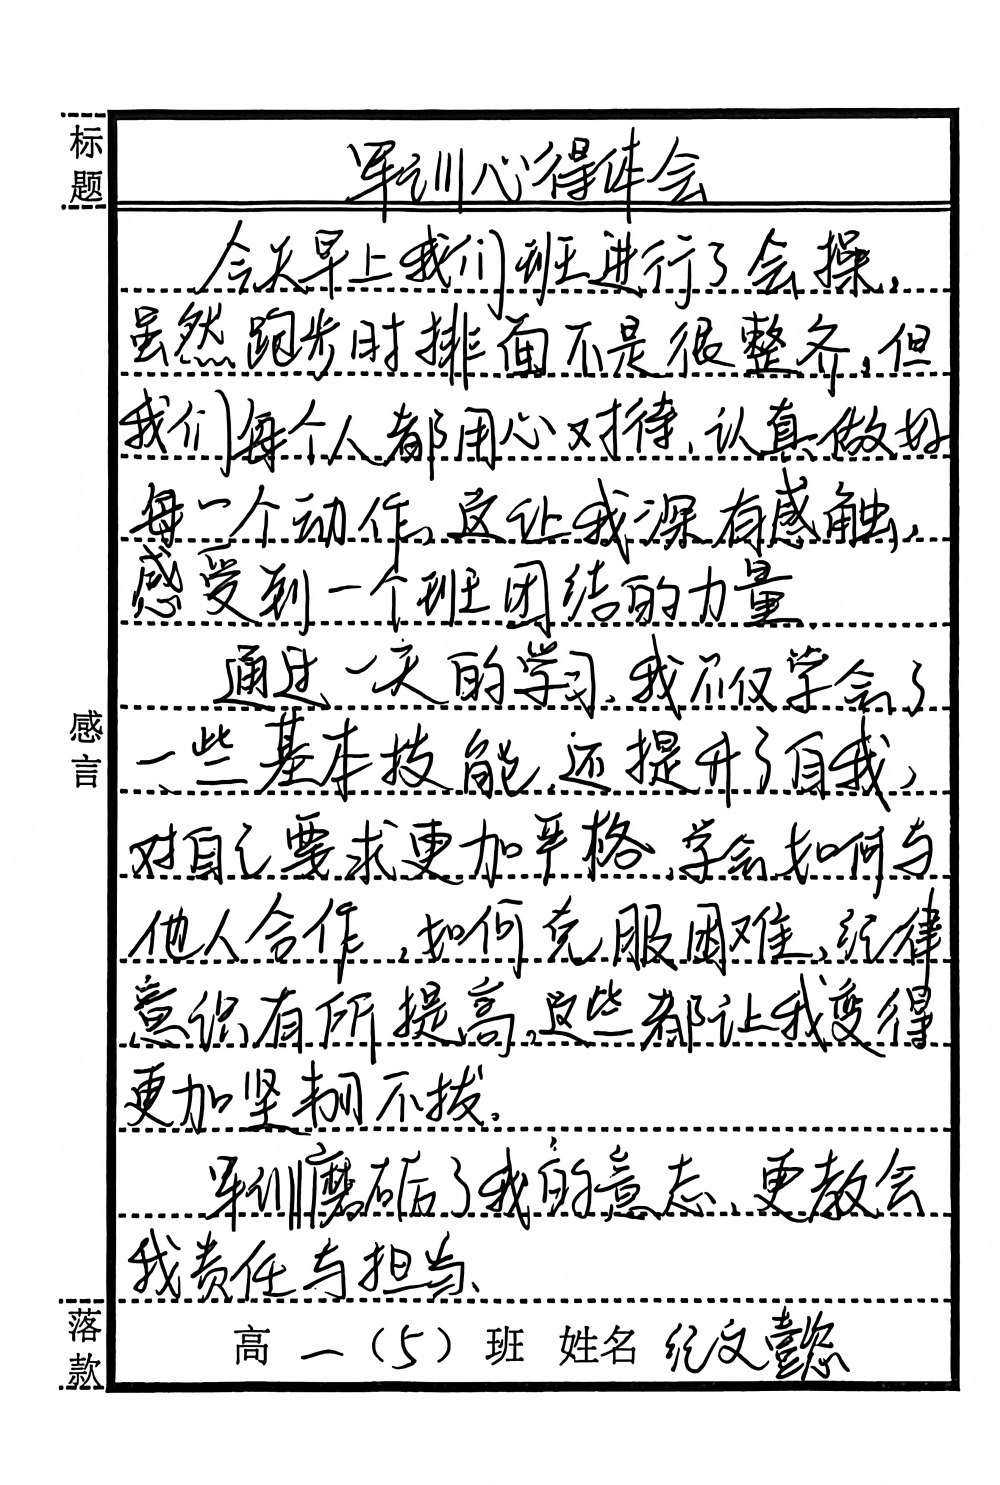 标题
军训心得体会
今天早上我们班进行了会操,
虽然跑步时排面不是很整齐,但
我们每个人都用心对待,认真做好
每一个动作。这让我深有感触,
感受到一个班团结的力量.
通过一天的学习,我不仅学会了
一些基本技能,还提升了自我,
对自己要求更加严格,学会如何与
他人合作,如何克服困难,纪律
意识有所提高,这些都让我变得
更加坚韧不拔。
军训磨砺了我的意志,更教会
我责任与担当、
感言
落款
高一(5)班 姓名 纪文